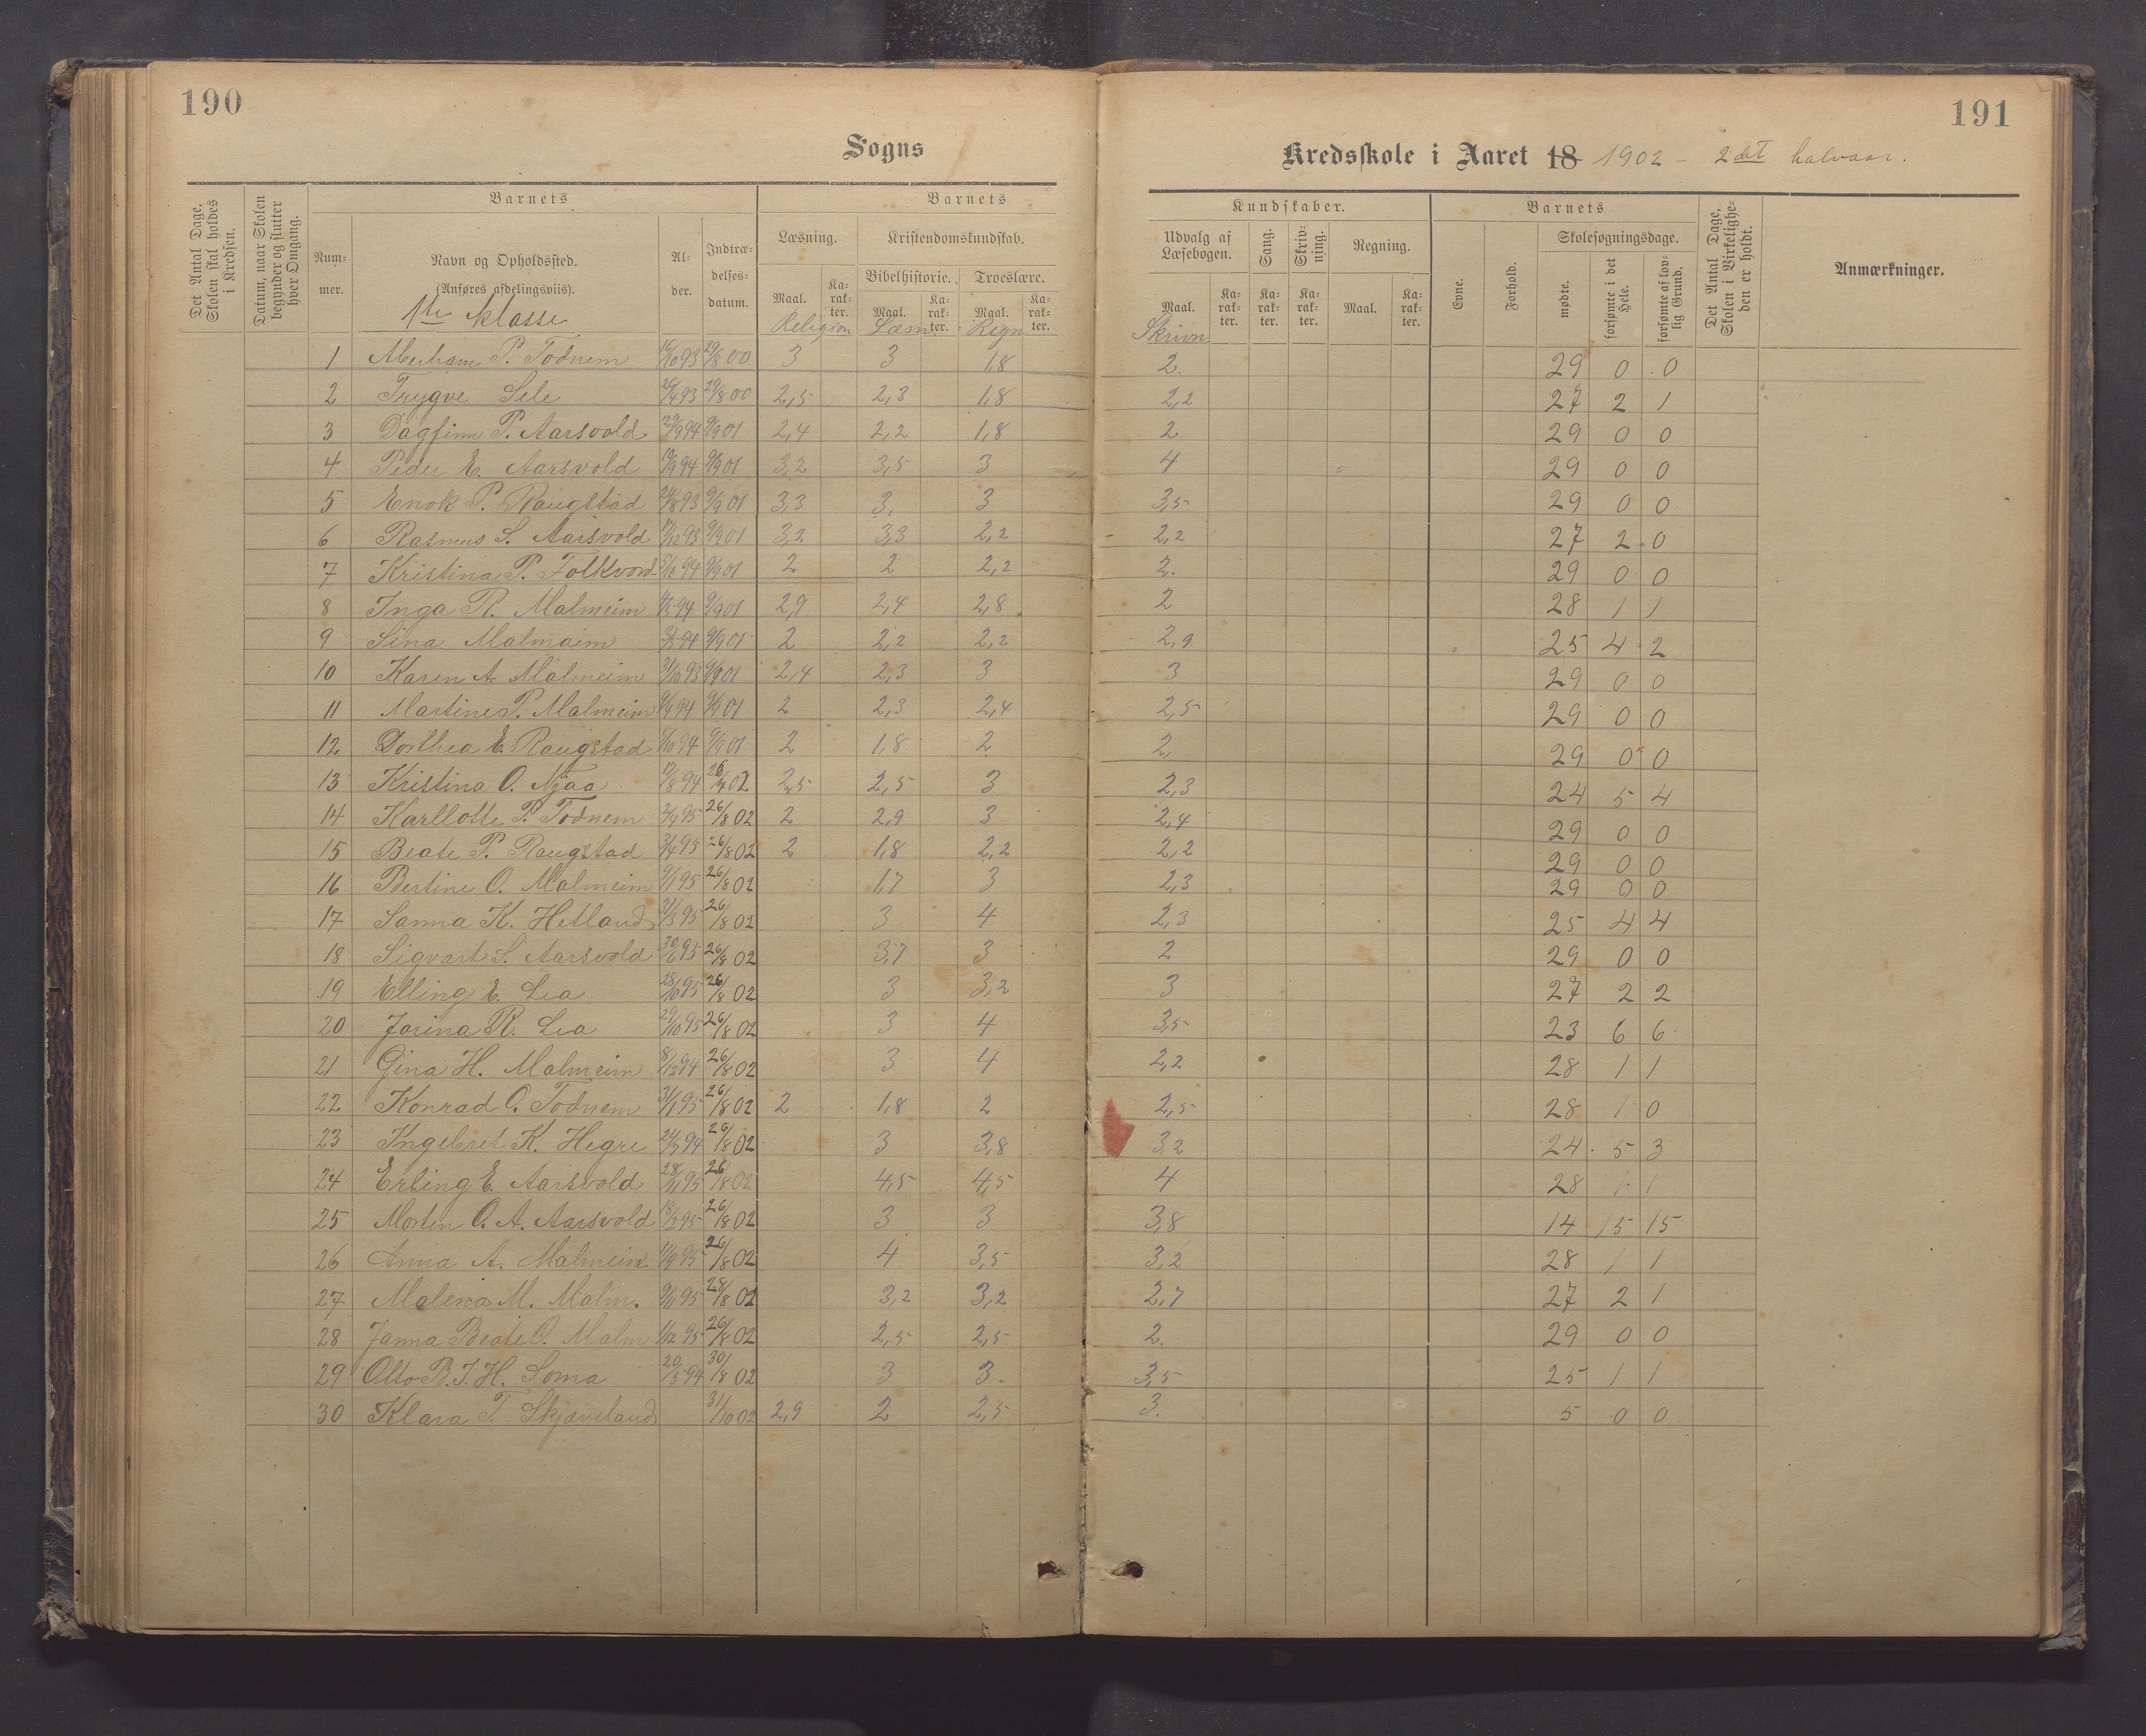 190
191
Sogns
Kredsskole i Aaret 18 1902 - 2det halvaar.
Det Antal Dage, Skolen skal holdes i Kredsen.
Datum, naar Skolen begynder og slutter hver Omgang.
Barnets
Nummer.
Navn og Opholdssted.
(Anføres afdelingsviis).
1ste klasse
Alder.
Indtrædelsesdatum.
Barnets
Læsning.
Kristendomskundskab.
Bibelhistorie.
Troeslære.
Maal. Karakter. Maal. Karakter. Maal. Karakter.
Religion Læsn Regn
Kundskaber.
Udvalg af Læsebogen.
Sang.
Skrivning.
Regning.
Maal. Karakter. Karakter. Karakter. Maal. Karakter.
Skrivn
Barnets
Evne.
Forhold.
Skolesøgningsdage.
mødte.
forsømte i det Hele.
forsømte af lovlig Grund.
Det Antal Dage, Skolen i Virkeligheden er holdt.
Anmærkninger.
1 Abraham P. Todnem 16/10 93 29/8 00 3 3 1,8 2. 29 0 0
2 Trygve Sele 93 29/8 00 2,5 2,3 1,8 2,2 27 2 1
3 Dagfinn P. Aarsvold 29/9 94 9/9 01 2,4 2,2 1,8 2 29 0 0
4 Peder E. Aarsvold 94 9/9 01 3,2 3,5 3 4 29 0 0
5 Enok P. Raugstad 93 9/9 01 3,3 3, 3 3,5 29 0 0
6 Rasmus S. Aarsvold 93 9/9 01 3,2 3,3 2,2 2,2 27 2 0
7 Kristina P. Folkvord 94 9/9 01 2 2 2,2 2. 29 0 0
8 Inga R. Malmeim 94 9/9 01 2,9 2,4 2,8 2 28 1 1
9 Sina Malmaim 94 9/9 01 2 2,2 2,2 2,9 25 4 2
10 Karen A. Malmeim 31/10 93 9/9 01 2,4 2,3 3 3 29 0 0
11 Martine P. Malmeim 94 9/9 01 2 2,3 2,4 2,5 29 0 0
12 Dorthea E. Raugstad 94 9/9 01 2 1,8 2 2, 29 0 0
13 Kristina O. Njaa 17/8 94 02 2,5 2,5 3 2,3 24 5 4
14 Karllotte P. Todnem 95 26/8 02 2 2,9 3 2,4 29 0 0
15 Beate P. Raugstad 95 26/8 02 2 1,8 2,2 2,2 29 0 0
16 Bertine O. Malmeim 9/1 95 26/8 02 1,7 3 2,3 29 0 0
17 Sanna K. Hetland 95 26/8 02 3 4 2,3 25 4 4
18 Sigvart S. Aarsvold 95 26/8 02 3,7 3 2 29 0 0
19 Elling E. Lea 28/10 95 26/8 02 3 3,2 3 27 2 2
20 Jorina R. Lea 29/10 95 26/8 02 3 4 3,5 23 6 6
21 Gina H. Malmeim 8/12 94 26/8 02 3 4 2,2 28 1 1
22 Konrad O. Todnem 31/1 95 26/8 02 2 1,8 2 2,5 28 1 0
23 Ingebret K. Hegre 94 26/8 02 3 3,8 3,2 24 5 3
24 Erling E. Aarsvold 28/11 95 26/8 02 4,5 4,5 4 28 1 1
25 Morten O. A. Aarsvold 95 26/8 02 3 3 3,8 14 15 15
26 Anna A. Malmeim 95 26/8 02 4 3,5 3,2 28 1 1
27 Malena M. Malm. 95 28/8 02 3,2 3,2 2,7 27 2 1
28 Janna Beate O. Malm 1/12 95 26/8 02 2,5 2,5 2. 29 0 0
29 Otto B. J. H. Soma 20/5 94 30/8 02 3 3. 3,5 25 1 1
30 Klara T. Skjæveland 31/10 02 2,9 2 2,5 3. 5 0 0